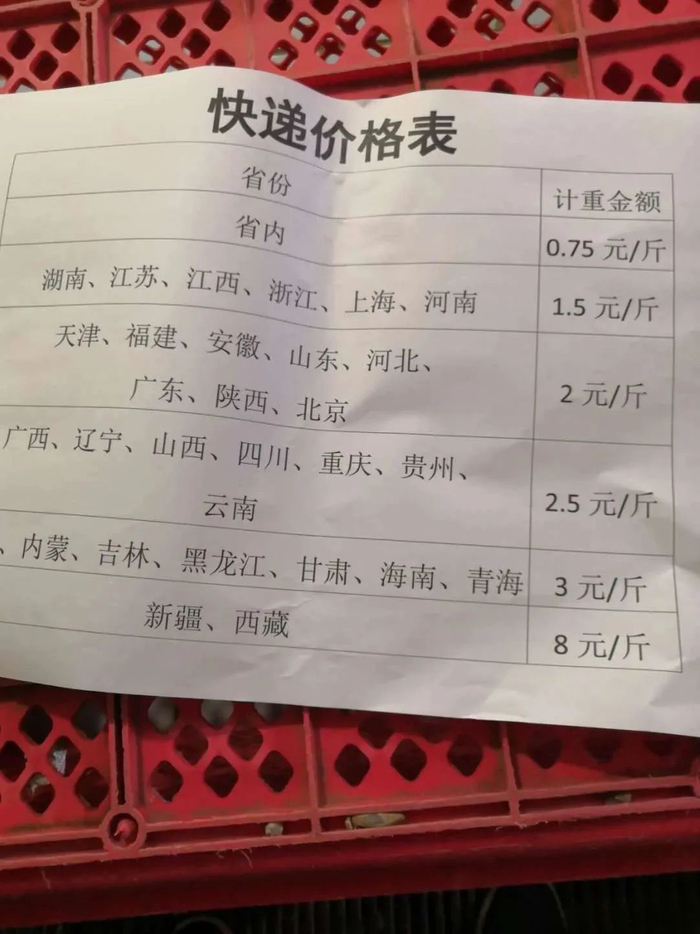 快递价格表
省份 计重金额
省内 0.75 元/斤
湖南、江苏、江西、浙江、上海、河南 1.5 元/斤
天津、福建、安徽、山东、河北、
广东、陕西、北京 2 元/斤
广西、辽宁、山西、四川、重庆、贵州、
云南 2.5 元/斤
、内蒙、吉林、黑龙江、甘肃、海南、青海 3 元/斤
新疆、西藏 8 元/斤